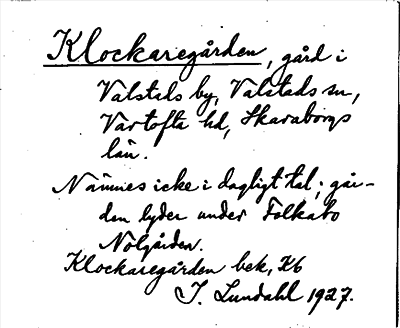 Klockaregården, gård i
Valstads by, Valstads sn,
Vartofta hd, Skaraborgs
län.
Nämnes icke i dagligt tal; går-
den lyder under Folkabo
Nolgården.
Klockaregården bek, Kb
I. Lundahl 1927.